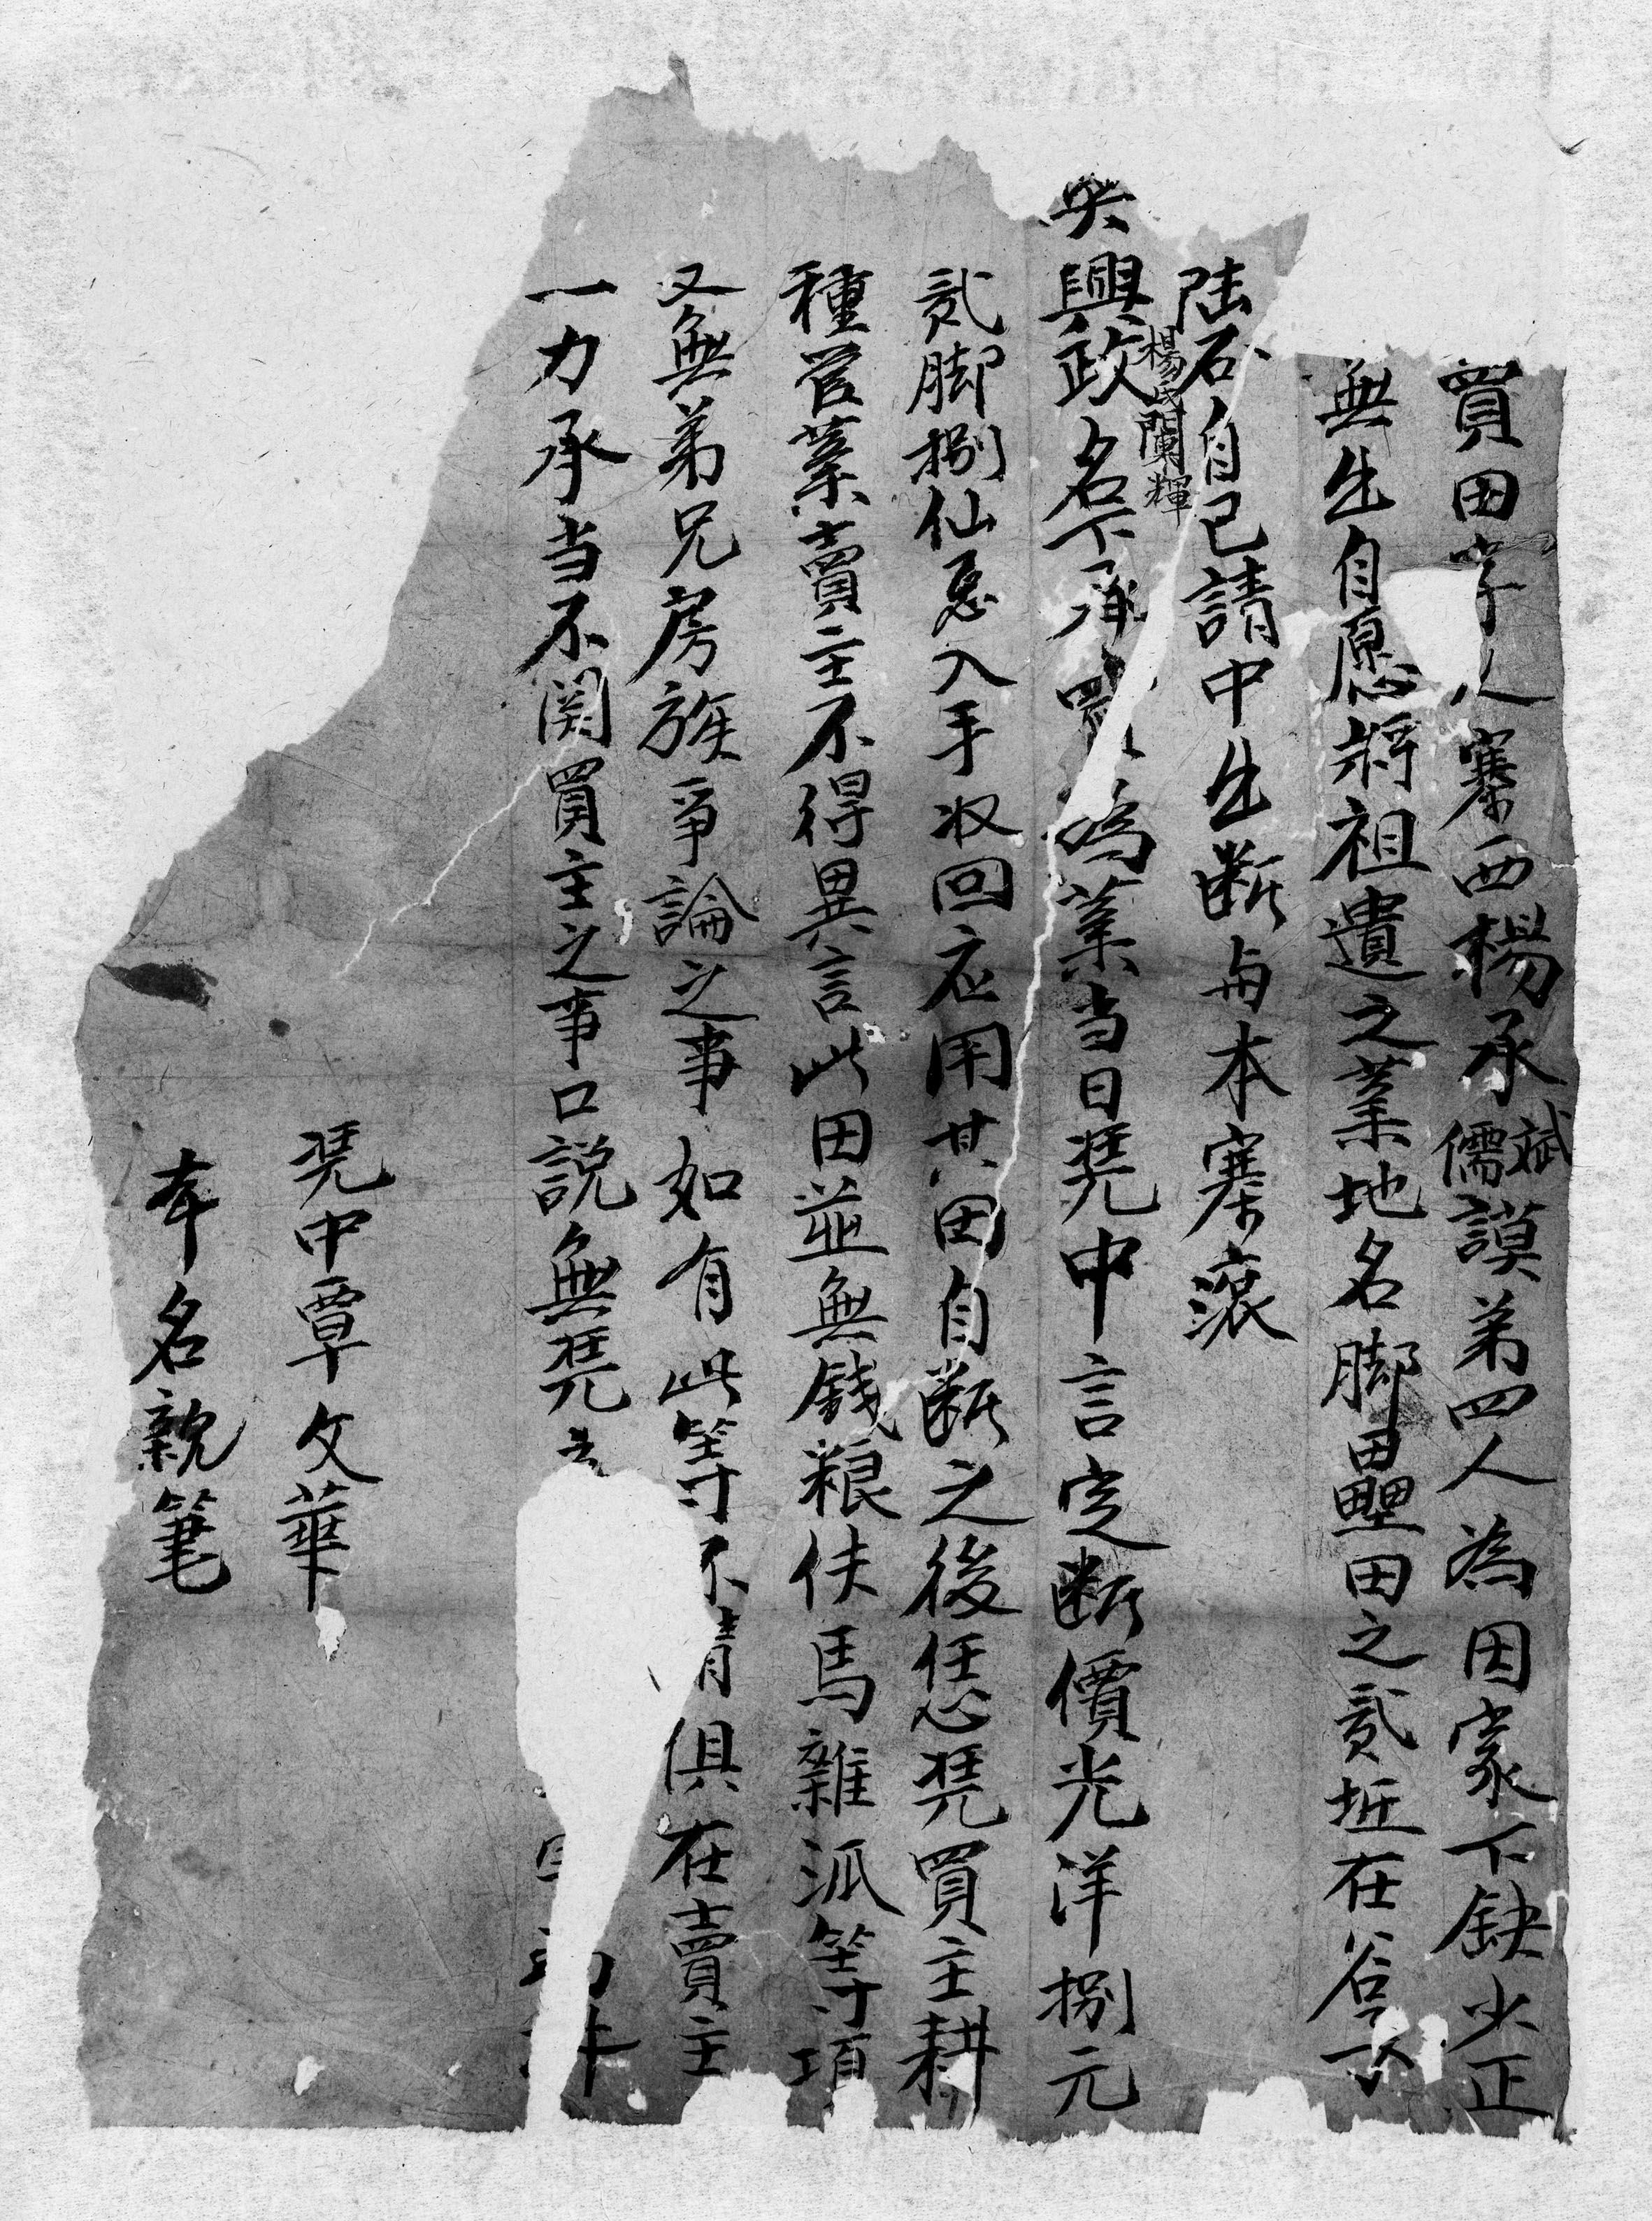 買田字人寨西楊承斌儒謨弟四人為因家下缺少正
無生自愿將祖遺之業地名脚壘田之貳坵在谷下
陆石自己請中生断與本寨滾
楊氏蘭輝
興政名下承買為業当日凭中言定断價光洋捌元
貳脚捌仙忽入手收回应用其田自断之後任凭買主耕
種管業賣主不得異言此田並無錢粮伕馬雜派等項
又無弟兄房族爭論之事如有此等不清俱在賣主
一力承当不関買主之事口説無凭
凭中覃文華
本名親筆